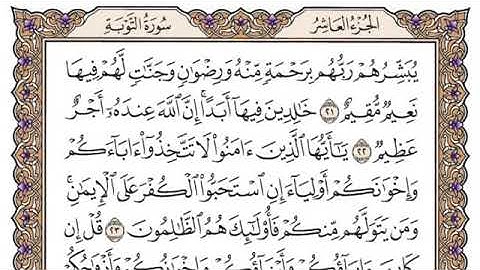 الجُزءُ العَاشِرُ سُورَةُ التَّوْبَةِ
يُبَشِّرُهُمْ رَبُّهُم بِرَحْمَةٍ مِّنْهُ وَرِضْوَٰنٍ وَجَنَّٰتٍ لَّهُمْ فِيهَا
نَعِيمٌ مُّقِيمٌ ٢١ خَٰلِدِينَ فِيهَآ أَبَدًا ۚ إِنَّ ٱللَّهَ عِندَهُۥٓ أَجْرٌ
عَظِيمٌ ٢٢ يَٰٓأَيُّهَا ٱلَّذِينَ ءَامَنُوا۟ لَا تَتَّخِذُوٓا۟ ءَابَآءَكُمْ
وَإِخْوَٰنَكُمْ أَوْلِيَآءَ إِنِ ٱسْتَحَبُّوا۟ ٱلْكُفْرَ عَلَى ٱلْإِيمَٰنِ ۚ
وَمَن يَتَوَلَّهُم مِّنكُمْ فَأُو۟لَٰٓئِكَ هُمُ ٱلظَّٰلِمُونَ ٢٣ قُلْ إِن
كَانَ ءَابَآؤُكُمْ وَأَبْنَآؤُكُمْ وَإِخْوَٰنُكُمْ وَأَزْوَٰجُكُمْ